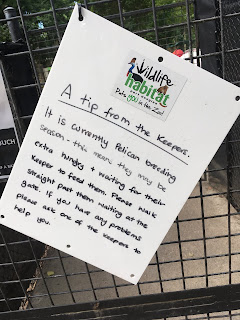 wildlife
habitat
YOU
A tip from the Keepers.
It is currently Pelican breeding
season - this means they may be
extra hungry + waiting for their
keeper to feed them. Please walk
straight past them waiting at the
gate. If you have any problems
please ask one of the keepers to
help you.
OUCH